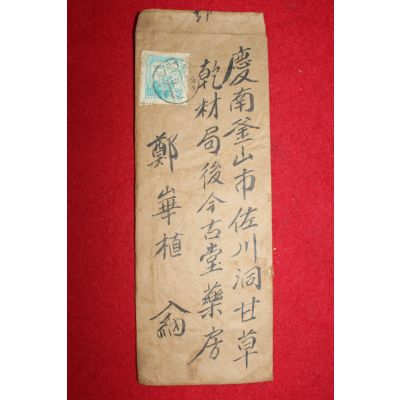 慶南釜山市佐川洞甘草
乾材局後今古堂藥房
鄭崋植 入納